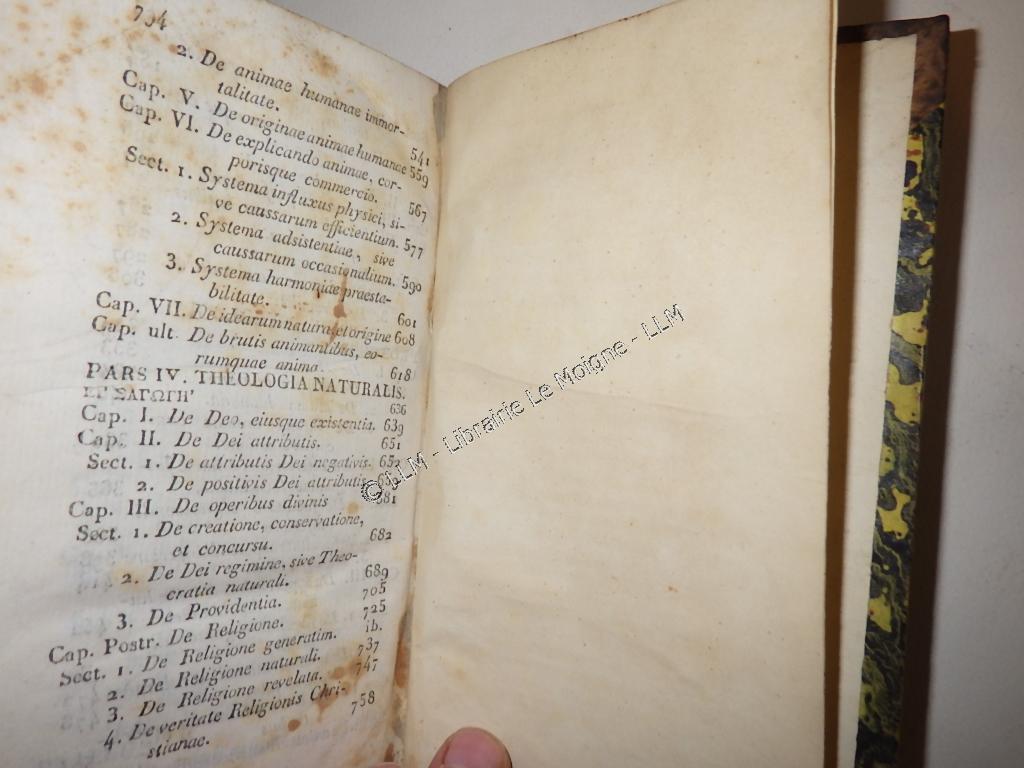 794
2. De animae humanae immor-
talitate. 541
Cap. V. De originae animae humanae 559
Cap. VI. De explicando animae, cor-
porisque commercio. 567
Sect. 1. Systema influxus physici, si-
ve caussarum efficientium. 577
2. Systema adsistentiae, sive
caussarum occasionalium. 590
3. Systema harmoniae praesta-
bilitate. 601
Cap. VII. De idearum natura, et origine 608
Cap. ult. De brutis animantibus, eo-
rumquae anima. 618
PARS IV. THEOLOGIA NATURALIS.
ΕΙΣΑΓΩΓΗ' 636
Cap. I. De Deo, eiusque existentia. 639
Cap. II. De Dei attributis. 651
Sect. 1. De attributis Dei negativis. 652
2. De positivis Dei attributis
Cap. III. De operibus divinis 681
Sect. 1. De creatione, conservatione,
et concursu. 682
2. De Dei regimine, sive Theo-
cratia naturali. 689
3. De Providentia. 705
Cap. Postr. De Religione. 725
Sect. 1. De Religione generatim. ib.
2. De Religione naturali. 737
3. De Religione revelata. 747
4. De veritate Religionis Chri-
stianae. 758
© LLM - Librairie Le Moigne - LLM